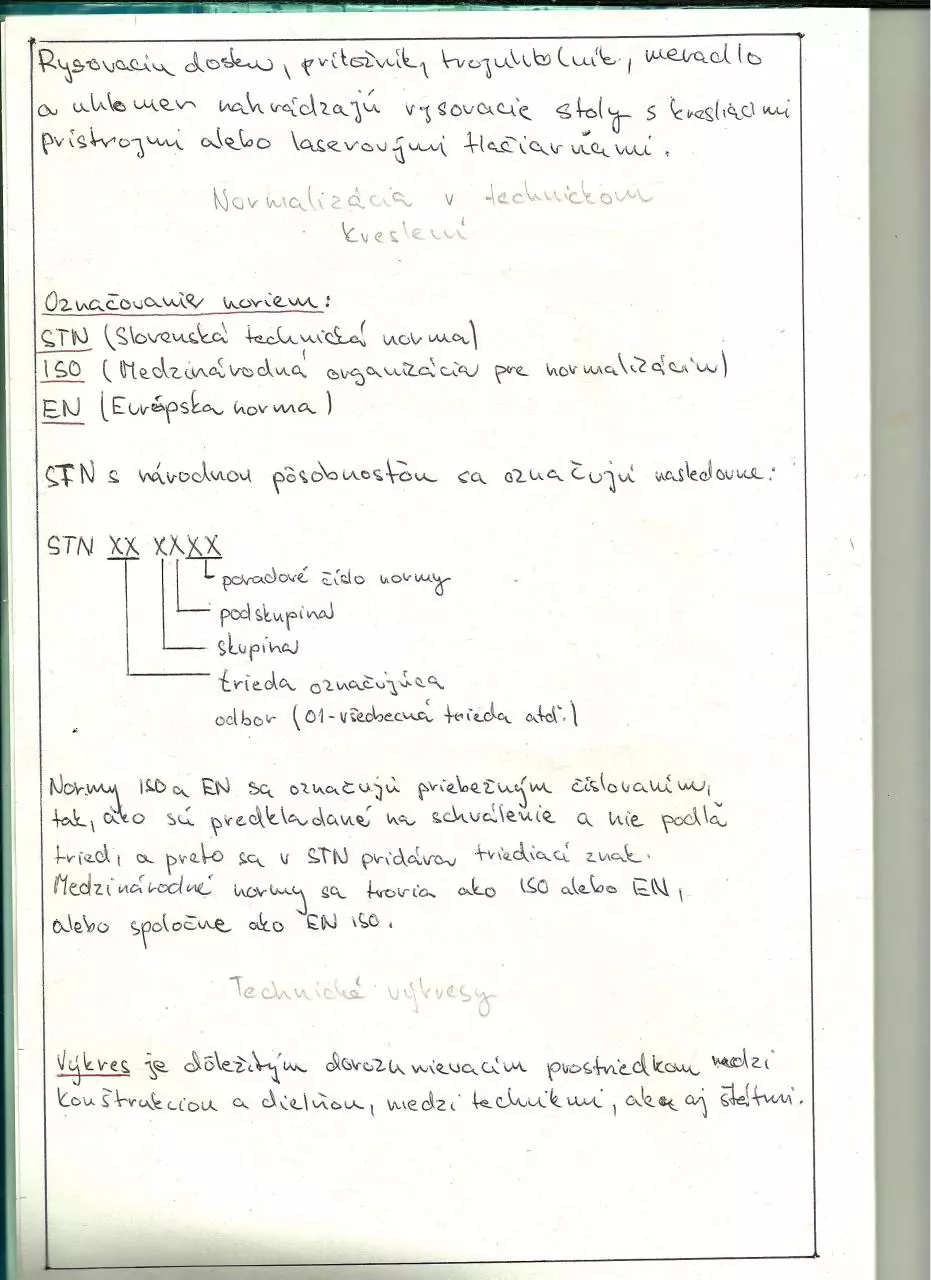 Rysovaciu dosku, príložník, trojuholník, meradlo
a uhlomer nahrádzajú rysovacie stoly s kresliacimi
prístrojmi alebo laserovými tlačiarňami.
Normalizácia v technickom
kreslení
Označovanie noriem:
STN (Slovenská technická norma)
ISO (Medzinárodná organizácia pre normalizáciu)
EN (Európska norma)
STN s národnou pôsobnosťou sa označujú nasledovne:
STN XX XXXX
poradové číslo normy
podskupina
skupina
trieda označujúca
odbor (01-všeobecná trieda atď.)
Normy ISO a EN sa označujú priebežným číslovaním,
tak, ako sú predkladané na schválenie a nie podľa
tried, a preto sa v STN pridáva triediaci znak.
Medzinárodné normy sa tvoria ako ISO alebo EN,
alebo spoločne ako EN ISO.
Technické výkresy
Výkres je dôležitým dorozumievacím prostriedkom medzi
konštrukciou a dielňou, medzi technikmi, ako aj štátmi.